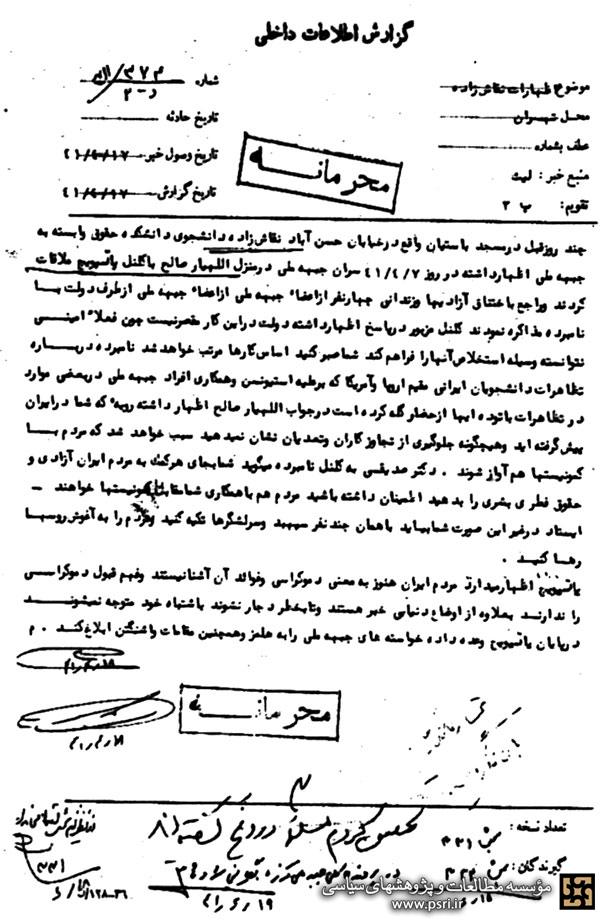 گزارش اطلاعات داخلی
موضوع اظهارات نقاش زاده
محل تهران
عطف بشماره
منبع خبر : لیث
تقویم : ب ۲
شماره ۳۷۴
تاریخ حادثه
تاریخ وصول خبر ۴۱/۴/۱۷
تاریخ گزارش ۴۱/۴/۱۷
محرمانه
چند روز قبل در مسجد باستیان واقع در خیابان حسن آباد نقاش زاده دانشجوی دانشکده حقوق وابسته به
جبهه ملی اظهار داشته در روز ۴۱/۴/۷ سران جبهه ملی در منزل اللهیار صالح با کلنل یاتسویچ ملاقات
کردند و راجع باختناق آزادیها و زندانی چهار نفر از اعضاء جبهه ملی از اعضاء جبهه ملی از طرف دولت با
نامبرده مذاکره نمودند کلنل مزبور در پاسخ اظهار داشته دولت در این کار مقصر نیست چون فعلا امینی
نتوانسته وسیله استخلاص آنها را فراهم کند شما صبر کنید اساس کارها مرتب خواهد شد نامبرده در باره
تظاهرات دانشجویان ایرانی مقیم اروپا و آمریکا که بر علیه استیونسن و همکاری افراد جبهه ملی در بعضی موارد
در تظاهرات با توده ایها از حضار گله کرده است در جواب اللهیار صالح اظهار داشته رویه که شما در ایران
پیش گرفته اید و هیچگونه جلوگیری از تجاوز کاران و متعدیان نشان نمیدهید سبب خواهد شد که مردم با
کمونیستها هم آواز شوند . دکتر صدیقی به کلنل نامبرده میگوید شما بجای هر کمک به مردم ایران آزادی و
حقوق فطری بشری را بدهید اطمینان داشته باشید مردم هم با همکاری شما مقابل کمونیستها خواهند -
ایستاد در غیر این صورت شما بیاید با همان چند نفر سپهبد و سرلشگرها تکیه کنید و مردم را به آغوش روسها
رها کنید .
یاتسویچ اظهار میدارد مردم ایران هنوز به معنی دموکراسی و فوائد آن آشنا نیستند و فهم قبول دموکراسی
را ندارند بعلاوه از اوضاع دنیا بی خبر هستند و تا بخطر دچار نشوند باشتباه خود متوجه نمیشوند
در پایان یاتسویچ وعده داده خواسته های جبهه ملی را به هلمز و همچنین مقامات واشنگتن ابلاغ کند . م
محرمانه
تعداد نسخه :
گیرندگان :
مؤسسه مطالعات و پژوهشهای سیاسی
www.psri.ir